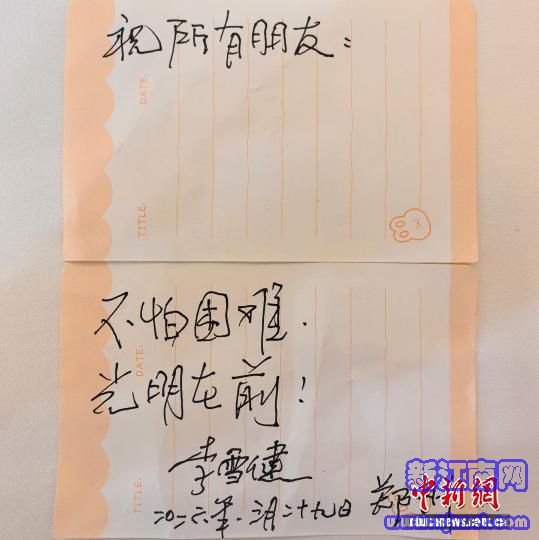 祝所有朋友：
DATE.
TITLE.
3
不怕困难.
光明在前！
DATE.
TITLE.
李雪健
二〇二六年.二月二十九日 郑
新江南网
中新网